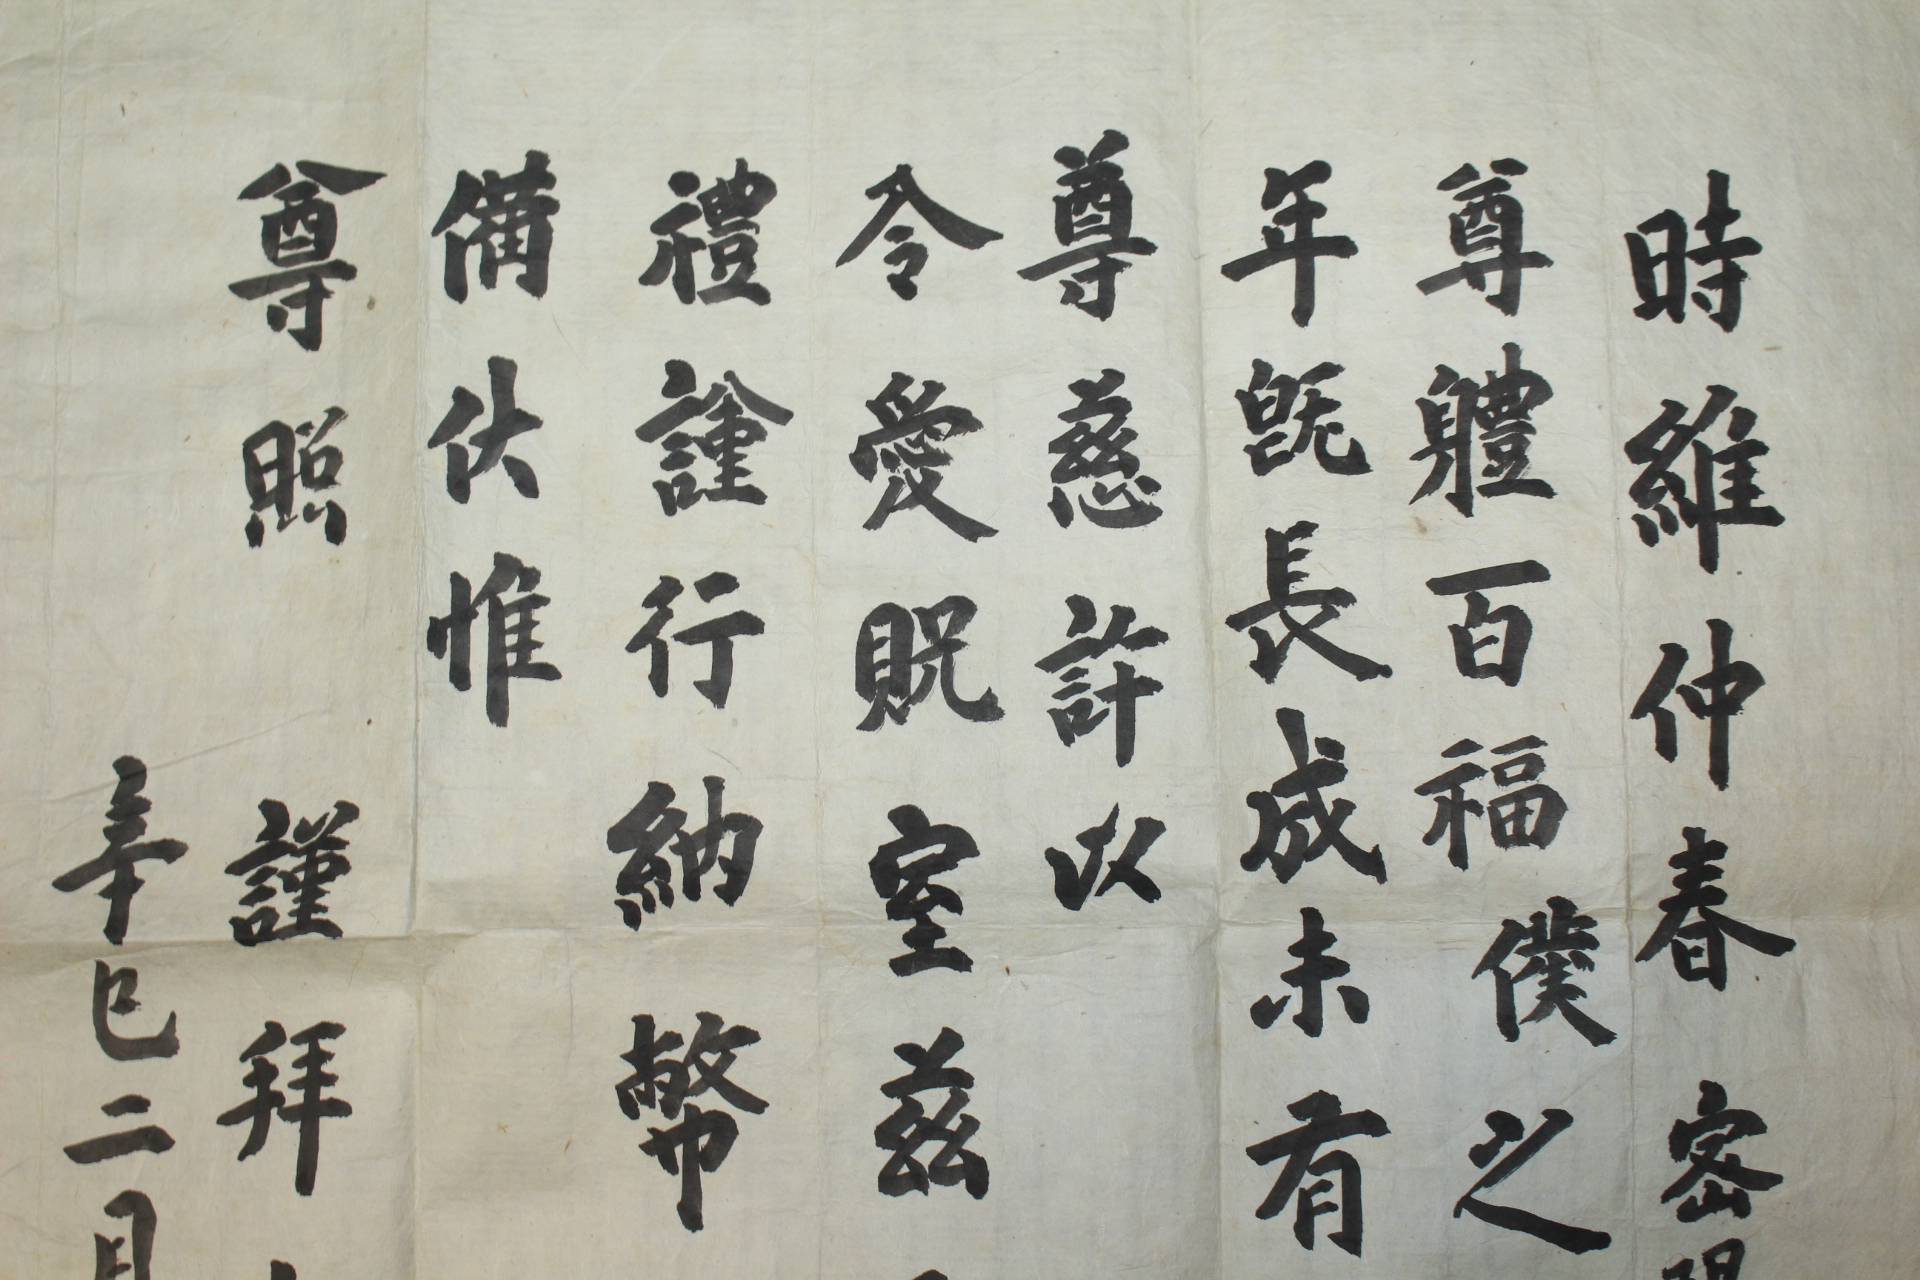 時維仲春密陽
尊體百福僕之
年旣長成未有
尊慈許以
令愛貺室茲
禮謹行納幣
備伏惟
尊照謹拜
辛巳二月